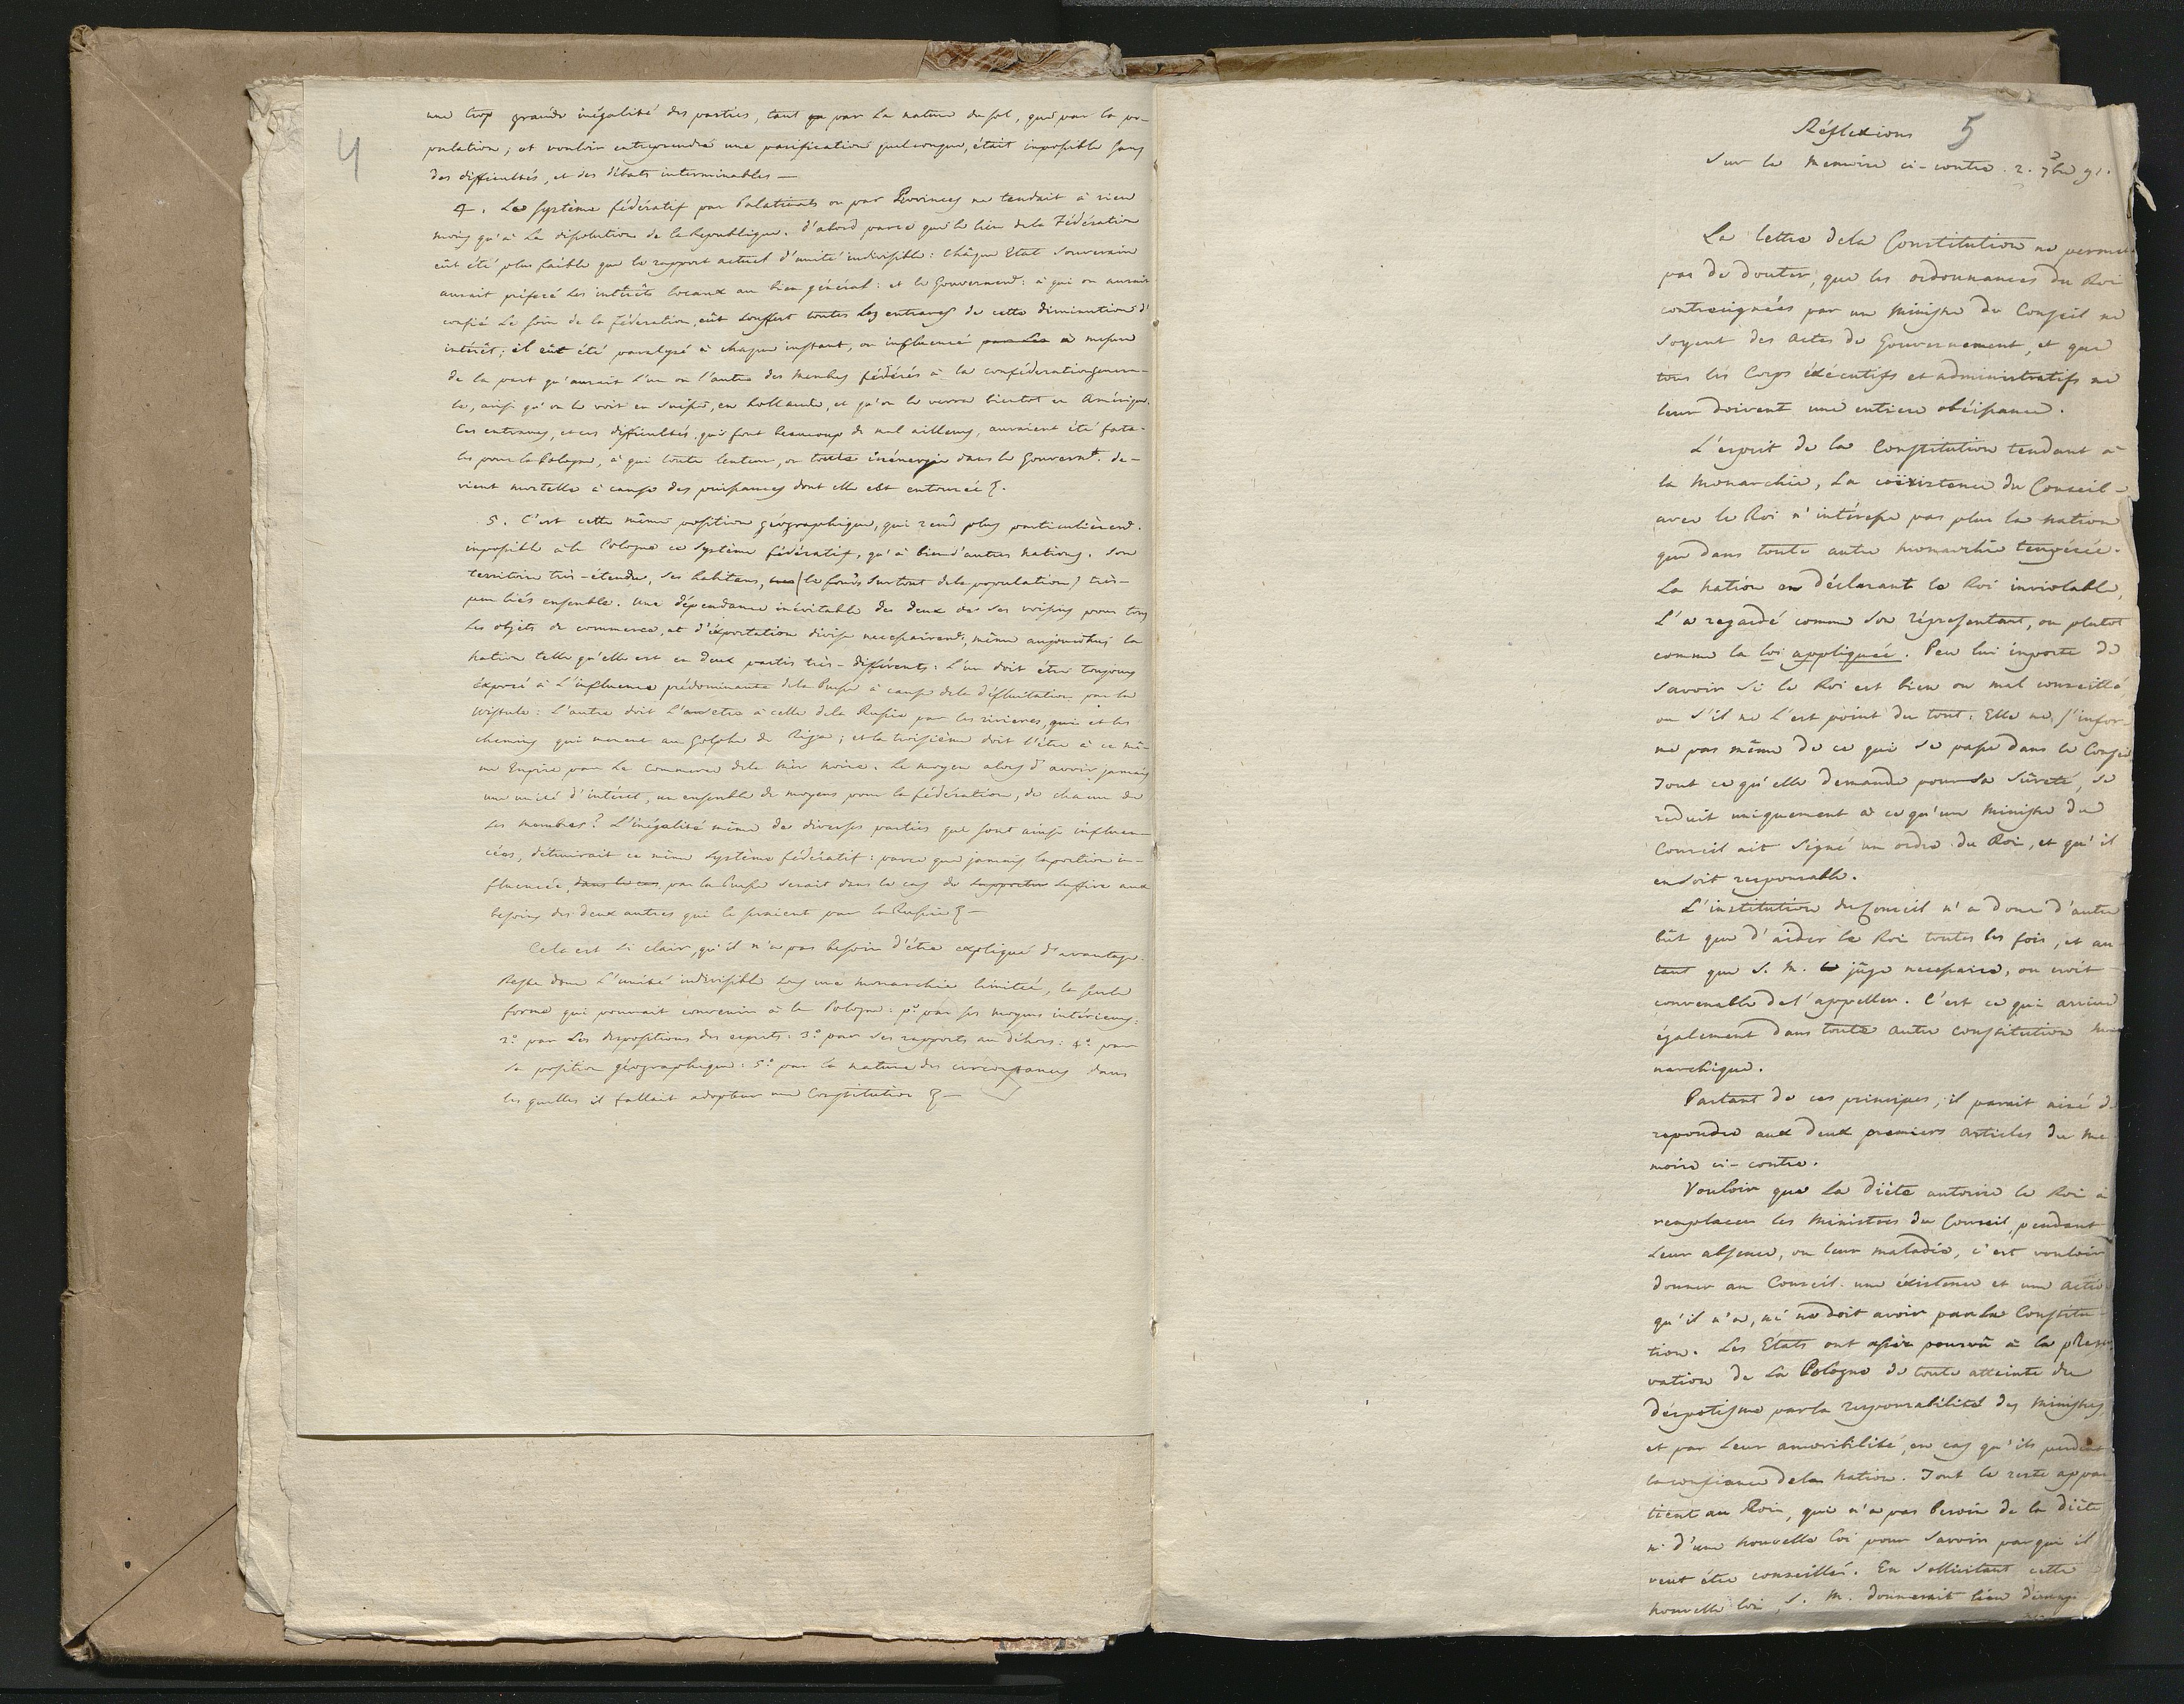 4
une trop grande inégalité des parties, tant par la nature du sol, que par la po-
pulation; et vouloir entreprendre une parification quelconque, était impossible sans
des difficultés, et des débats interminables —
4. Le système fédératif par Palatinats ou par Provinces ne tendait à rien
moins qu'à la dissolution de la République. d'abord parce que le lien de la Fédération
eût été plus faible que le rapport actuel d'unité indivisible: châque Etat Souverain
aurait préferé les intérêts locaux au bien général: et le Gouvernent: à qui on aurait
confié le soin de la fédération, eût souffert toutes les entraves de cette diminution d'
intérêt; il eût été paralysé à chaque instant, ou influencé par les à mesure
de la part qu'aurait l'un ou l'autre des Membres fédérés à la confédération genera-
le, ainsi qu'on le voit en Suisse, en Hollande, et qu'on le verra bientot en Amérique.
Ces entraves, et ces difficultés, qui font beaucoup de mal ailleurs, auraient été fata-
les pour la Pologne, à qui toute lenteur, ou toute inénergie dans le Gouvernt. de-
vient mortelle à cause des puissances dont elle est entourée
5. C'est cette même position géographique, qui rend plus particulièremt.
impossible à la Pologne ce système fédératif, qu'à bien d'autres nations. Son
territoire très-étendu, ses habitans, (le fonds surtout de la population) très-
peu liés ensemble. Une dépendance inévitable des deux de ses voisins pour tous
les objets de commerce, et d'éxportation divise necessairemt; même aujourdhui la
nation telle qu'elle est en deux partis très-différents: L'un doit être toujours
éxposé à l'influence prédominante de la Prusse à cause de la défluitation par la
Wistule: L'autre doit l'être à celle de la Russie par les rivieres, qui et les
chemins qui menent au Golphe de Riga; et la troisième doit l'être à ce mê-
me Empire par le Commerce de la Mer noire. Le moyen alors d'avoir jamais
une unité d'intéret, un ensemble de moyens pour la fédération, de chacun de
ses membres? L'inégalité même des diverses parties qui sont ainsi influen-
cées, détruirait ce même système fédératif: parce que jamais la portion in-
fluencée, dans le cas par la Prusse serait dans le cas de supporter suffire aux
besoins des deux autres qui le seraient par la Russie —
Cela est si clair, qu'il n'a pas besoin d'être expliqué d'avantage.
Reste donc l'unité indivisible sous une monarchie limitée, la seule
forme qui pourrait convenir à la Pologne: 1º par ses moyens intérieurs:
2º par les dispositions des esprits: 3º par ses rapports au déhors: 4º par
sa position géographique: 5º par la nature des circonstances dans
les quelles il fallait adopter une Constitution —
5
Réflexions
sur le Memoire ci-contre. 2. 7bre 91.
La lettre de la Constitution ne permet
pas de douter, que les ordonnances du Roi
contresignées par un Ministre du Conseil ne
soyent des actes de Gouvernement, et que
tous les Corps éxécutifs et administratifs ne
leur doivent une entiere obéissance.
L'esprit de la Constitution tendant à
la Monarchie, la coëxistence du Conseil
avec le Roi n'intéresse pas plus la nation
que dans toute autre monarchie tempérée.
La Nation en déclarant le Roi inviolable,
l'a regardé comme son réprésentant, ou plutot
comme la loi appliquée. Peu lui importe de
savoir si le Roi est bien ou mal conseillé,
ou s'il ne l'est point du tout: Elle ne s'infor-
me pas même de ce qui se passe dans le Conseil
Tout ce qu'elle demande pour sa sûreté, se
reduit uniquement à ce qu'un Ministre du
Conseil ait signé un ordre du Roi, et qu'il
en soit responsable.
L'institution du Conseil n'a donc d'autre
bût que d'aider le Roi toutes les fois, et au-
tant que S. M. le juge necessaire, ou croit
convenable de l'appeller. C'est ce qui arrive
également dans toute autre constitution mo
narchique.
Partant de ces principes, il parait aisé de
repondre aux deux premiers articles du Me-
moire ci-contre.
Vouloir que la diète autorise le Roi à
remplacer les Ministres du Conseil, pendant
leur absence, ou leur maladie, c'est vouloir
donner au Conseil une éxistence et une actio
qu'il n'a, ni ne doit avoir par la Constitu-
tion. Les Etats ont assez pourvû à la preser
vation de la Pologne de toute atteinte du
déspotisme par la responsabilité des Ministres,
et par leur amovibilité, en cas qu'ils perdent
la confiance de la nation. Tout le reste appar
tient au Roi, qui n'a pas besoin de la diète
ni d'une nouvelle loi pour savoir par qui il
veut être conseillé. En sollicitant cette
nouvelle loi, S. M. donnerait lieu